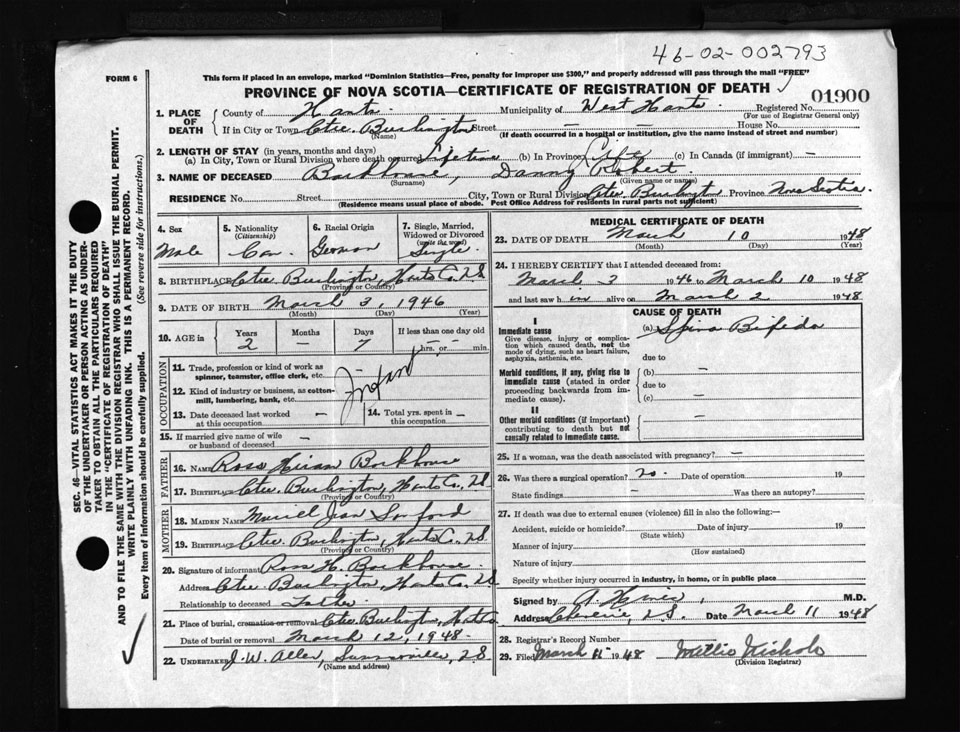 46-02-002793
FORM 6
This form if placed in an envelope, marked "Dominion Statistics—Free, penalty for improper use $300," and properly addressed will pass through the mail "FREE"
PROVINCE OF NOVA SCOTIA—CERTIFICATE OF REGISTRATION OF DEATH
01900
1. PLACE OF DEATH
County of Hants Municipality of West Hants Registered No.
(For use of Registrar General only)
If in City or Town Ctre. Burlington Street — House No. —
(Name) (If death occurred in a hospital or institution, give the name instead of street and number)
2. LENGTH OF STAY (in years, months and days)
(a) In City, Town or Rural Division where death occurred Lifetime (b) In Province Life (c) In Canada (if immigrant) —
3. NAME OF DECEASED Barkhouse, Danny Robert
(Surname) (Given name or names)
RESIDENCE No. Street City, Town or Rural Division Ctre. Burlington Province Nova Scotia
(Residence means usual place of abode. Post Office Address for residents in rural parts not sufficient)
4. Sex
Male
5. Nationality
(Citizenship)
Can.
6. Racial Origin
German
7. Single, Married, Widowed or Divorced
(write the word)
Single
8. BIRTHPLACE Ctre. Burlington, Hants Co., N.S.
(Province or Country)
9. DATE OF BIRTH March 3, 1946
(Month) (Day) (Year)
10. AGE in
Years Months Days If less than one day old
2 — 7 — hrs. or — min.
OCCUPATION
11. Trade, profession or kind of work as spinner, teamster, office clerk, etc.
12. Kind of industry or business, as cotton-mill, lumbering, bank, etc.
Infant
13. Date deceased last worked at this occupation —
14. Total yrs. spent in this occupation —
15. If married give name of wife or husband of deceased —
FATHER
16. NAME Ross Hiram Barkhouse
17. BIRTHPLACE Ctre. Burlington, Hants Co., N.S.
(Province or Country)
MOTHER
18. MAIDEN NAME Muriel Jean Sanford
19. BIRTHPLACE Ctre. Burlington, Hants Co., N.S.
(Province or Country)
20. Signature of informant Ross H. Barkhouse
Address Ctre. Burlington, Hants Co., N.S.
Relationship to deceased Father
21. Place of burial, cremation or removal Ctre. Burlington, Hants Co.
Date of burial or removal March 12, 1948
22. UNDERTAKER J. W. Allen, Summerville, N.S.
(Name and address)
MEDICAL CERTIFICATE OF DEATH
23. DATE OF DEATH March 10 1948
(Month) (Day) (Year)
24. I HEREBY CERTIFY that I attended deceased from:
March 3 1946 to March 10 1948
and last saw him alive on March 2 1948
CAUSE OF DEATH
I
Immediate cause
Give disease, injury or complication which caused death, not the mode of dying, such as heart failure, asphyxia, asthenia, etc.
(a) Spina Bifida
due to
Morbid conditions, if any, giving rise to immediate cause (stated in order proceeding backwards from immediate cause).
(b) —
due to
(c) —
II
Other morbid conditions (if important) contributing to death but not causally related to immediate cause.
—
25. If a woman, was the death associated with pregnancy? —
26. Was there a surgical operation? no. Date of operation 19
State findings — Was there an autopsy?
27. If death was due to external causes (violence) fill in also the following:—
Accident, suicide or homicide? Date of injury 19
(State which)
Manner of injury
(How sustained)
Nature of injury
Specify whether injury occurred in industry, in home, or in public place
Signed by M.D.
Address Cheverie, N.S. Date March 11 1948
28. Registrar's Record Number
29. Filed March 1948 Nichols
(Division Registrar)
SEC. 46—VITAL STATISTICS ACT MAKES IT THE DUTY
OF THE UNDERTAKER OR PERSON ACTING AS UNDER-
TAKER TO OBTAIN ALL THE PARTICULARS REQUIRED
IN THE "CERTIFICATE OF REGISTRATION OF DEATH"
AND TO FILE THE SAME WITH THE DIVISION REGISTRAR WHO SHALL ISSUE THE BURIAL PERMIT.
WRITE PLAINLY WITH UNFADING INK. THIS IS A PERMANENT RECORD.
Every item of information should be carefully supplied. (See reverse side for instructions.)